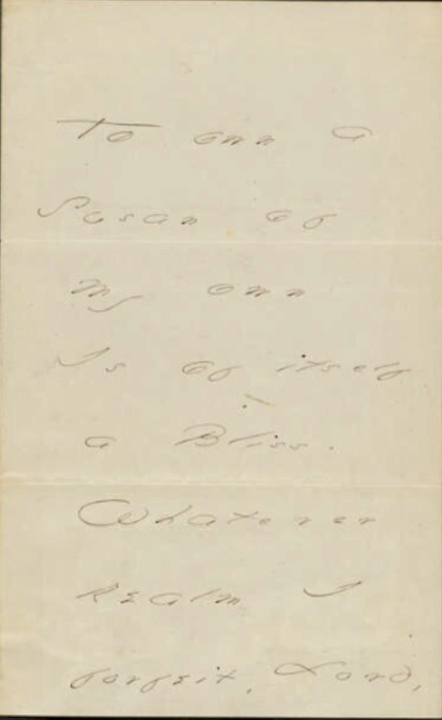 To own a
Susan of
my own
Is of itself
a Bliss.
Whatever
Realm I
forfeit, Lord,